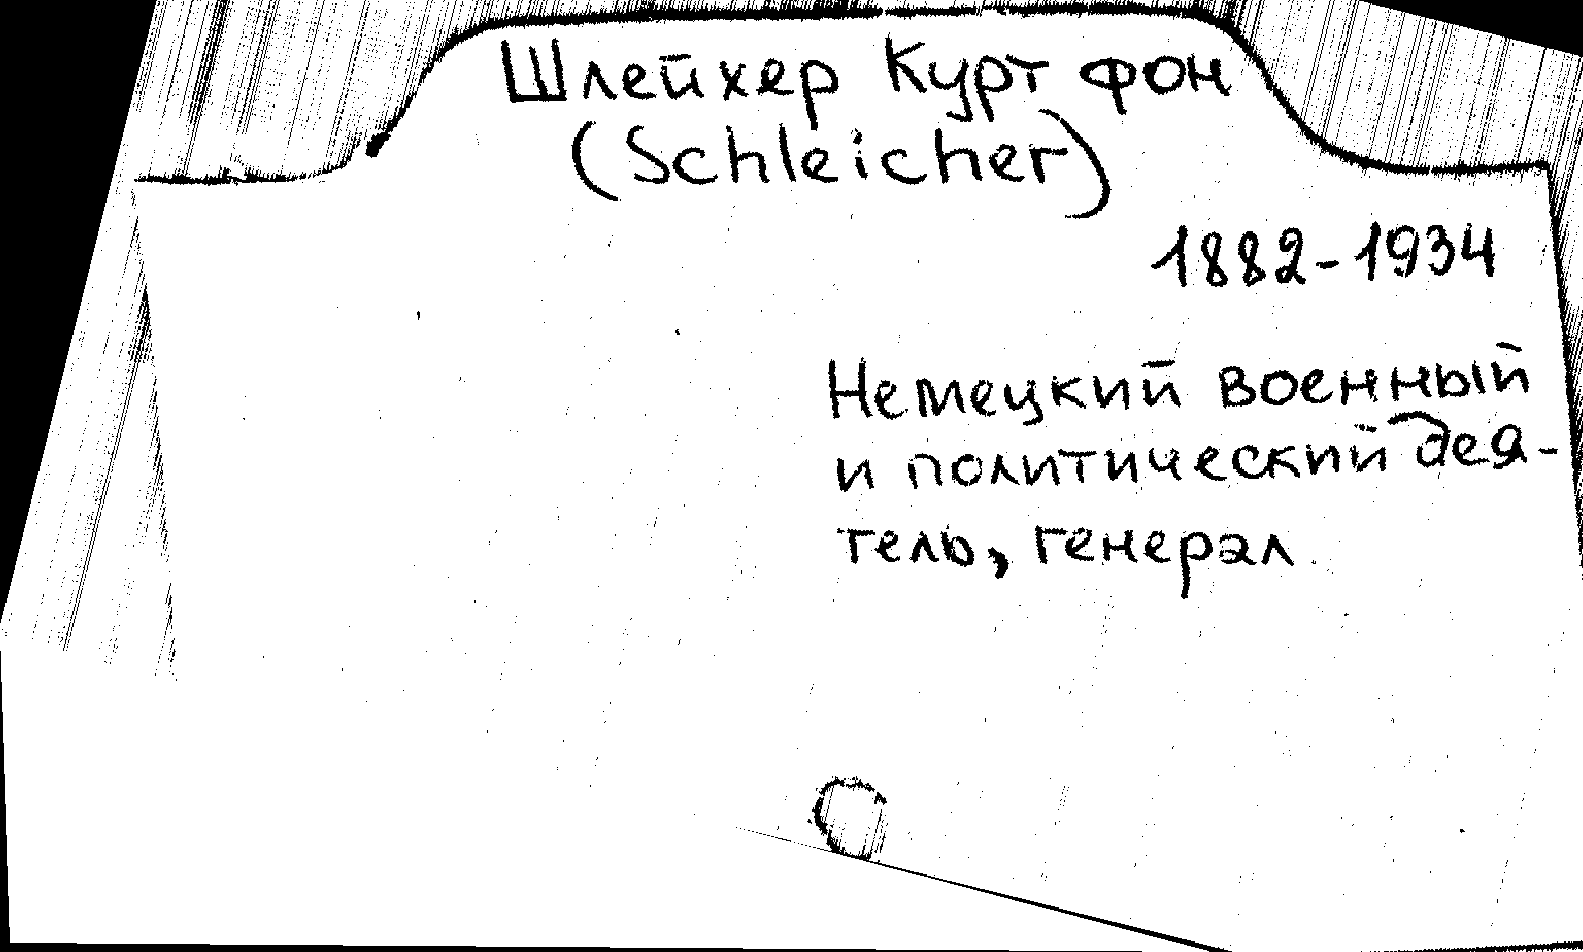 Шлейхер Курт фон
(Schleicher)
1882-1934
Немецкий военный
и политический дея-
тель, генерал